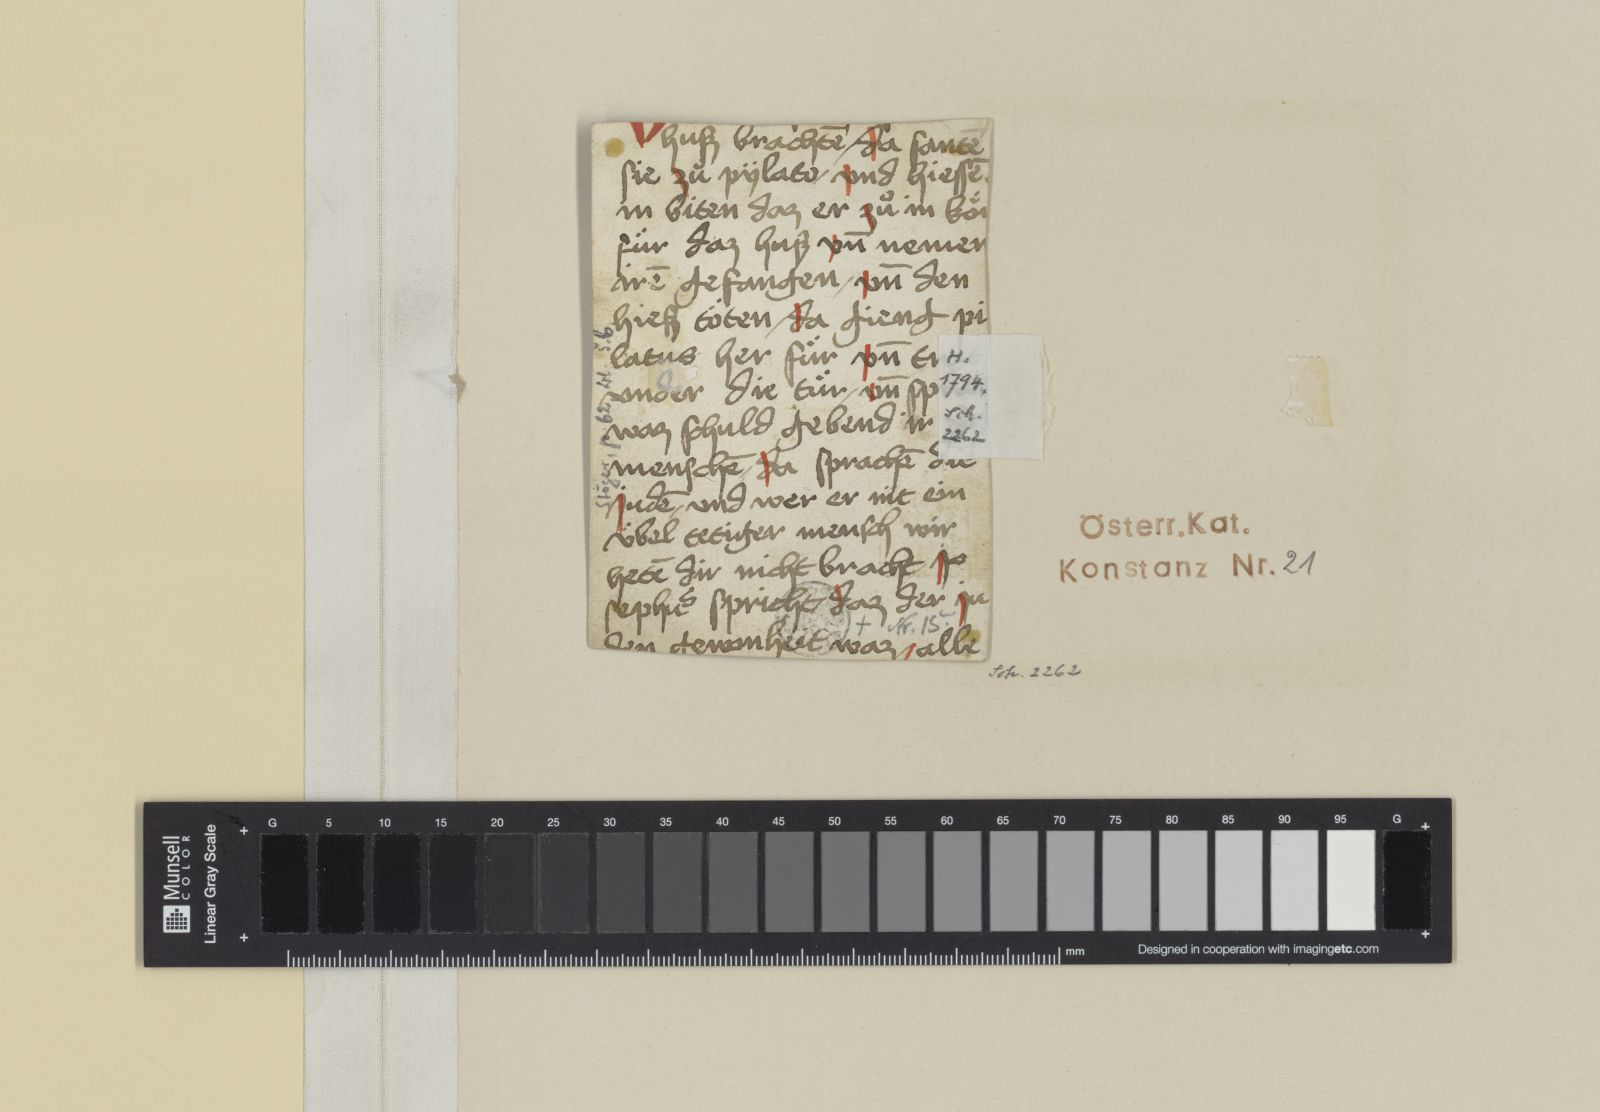 husz brachtē da santē
sie zů pÿlato und hiessē
in biten daz er zů in
für daz husz vn̄ nemen
irē gefangen vn̄ den
hiesz töten da gieng pi
latus her für vn̄
under die tür vn̄ sp
waz schuld gebend ir
menschē da sprachē die
judē und wer er nit ein
übel tetiger mensch wir
hetē dir nicht bracht
sephus spricht daz der ju
den gewonheit waz alle
H.
1794.
Sch.
2262
+ Nr. 15
Sch. 2262
Österr. Kat.
Konstanz Nr. 21
Munsell
COLOR
Linear Gray Scale
G 5 10 15 20 25 30 35 40 45 50 55 60 65 70 75 80 85 90 95 G
mm
Designed in cooperation with imagingetc.com